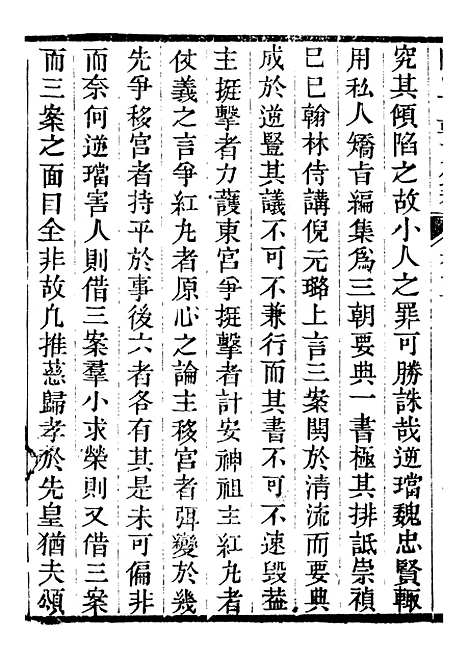 究其傾陷之故小人之罪可勝誅哉逆璫魏忠賢輙
用私人矯旨編集爲三朝要典一書極其排詆崇禎
己巳翰林侍講倪元璐上言三案関於清流而要典
成於逆豎其議不可不兼行而其書不可不速毀葢
主挺擊者力護東宮爭挺擊者計安神祖主紅丸者
仗義之言爭紅丸者原心之論主移宮者弭變於幾
先爭移宮者持平於事後六者各有其是未可偏非
而奈何逆璫害人則借三案羣小求榮則又借三案
而三案之面目全非故凡推慈歸孝於先皇猶夫頌